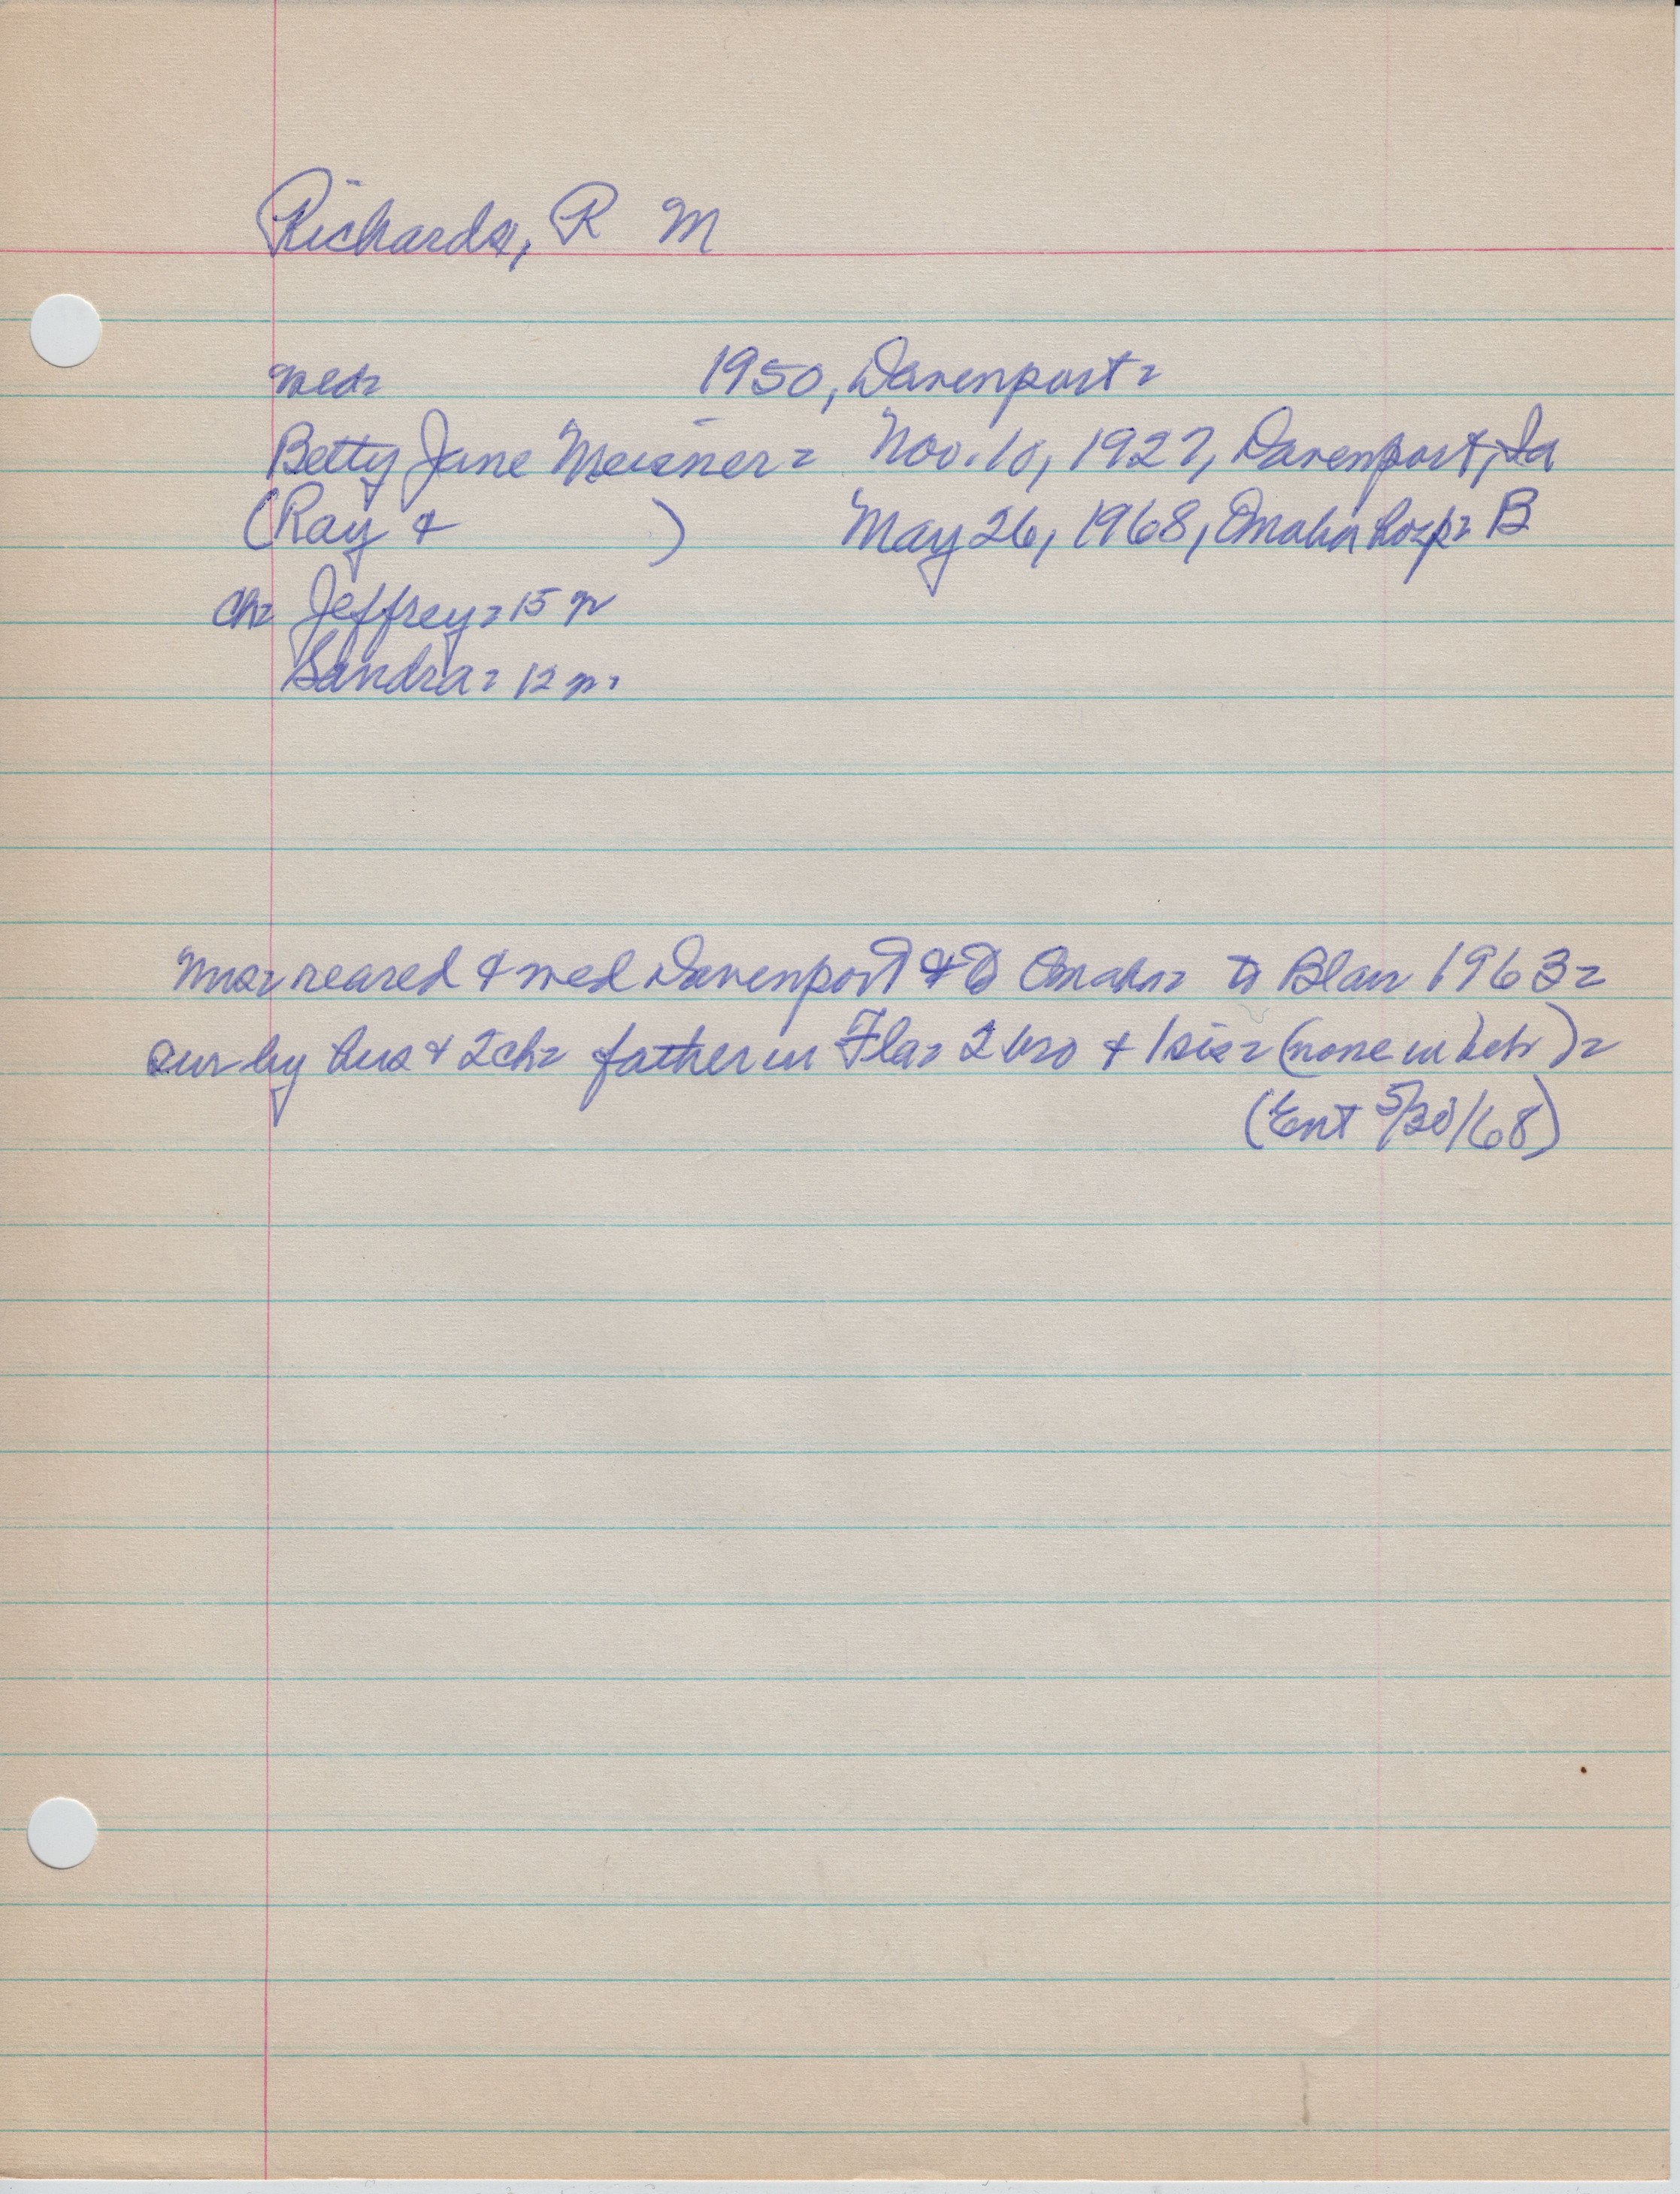 Richards, R M
wed= 1950, Davenport=
Betty Jane Meisner= Nov. 10, 1927, Davenport, Ia
(Ray & ) May 26, 1968, Omaha hosp= B
ch= Jeffrey= 15 
Sandra= 12 
Mrs= reared & wed Davenport & to Omaha= to Blair 1963=
sur by hus & 2 ch= father in Fla= 2 bro & 1 sis= (none in Nebr)=
(Ent 5/30/68)